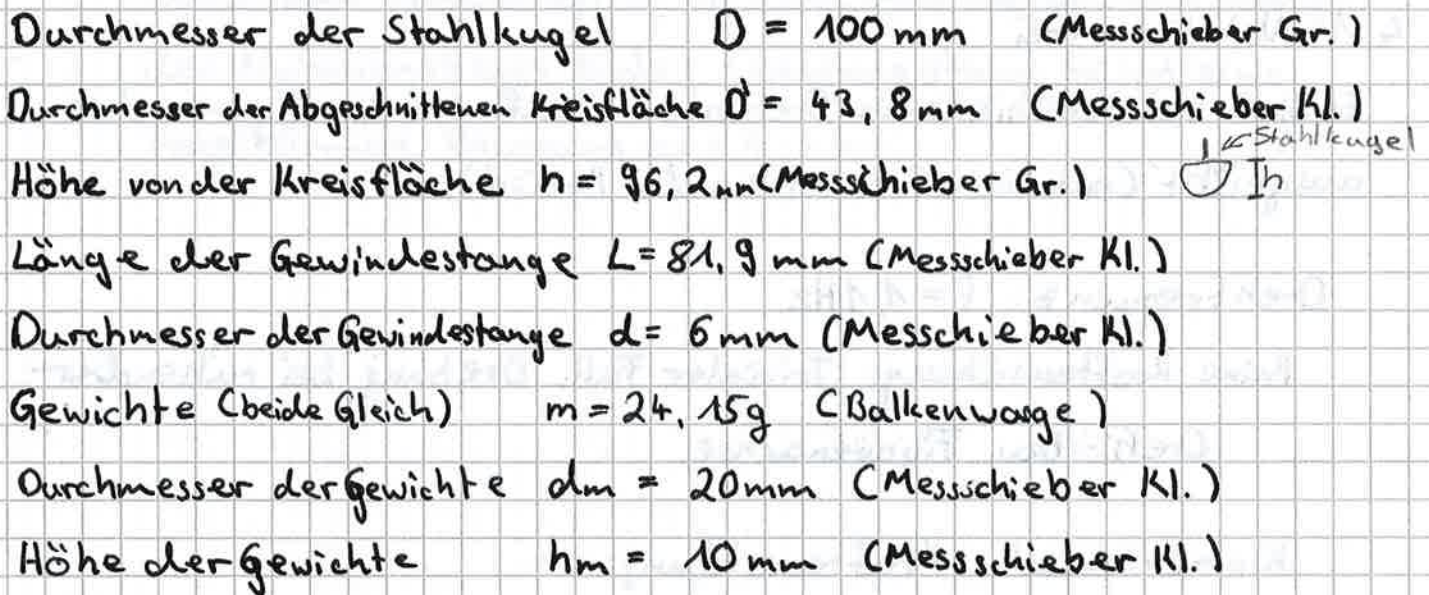 Durchmesser der Stahlkugel D = 100 mm (Messschieber Gr.)
Durchmesser der Abgeschnittenen Kreisfläche D' = 43,8 mm (Messschieber Kl.)
Stahlkugel
Höhe von der Kreisfläche h = 96,2 mm (Messschieber Gr.) h
Länge der Gewindestange L = 81,9 mm (Messschieber Kl.)
Durchmesser der Gewindestange d = 6 mm (Messchieber Kl.)
Gewichte (beide Gleich) m = 24,15g (Balkenwaage)
Durchmesser der Gewichte dm = 20mm (Messschieber Kl.)
Höhe der Gewichte hm = 10 mm (Messschieber Kl.)